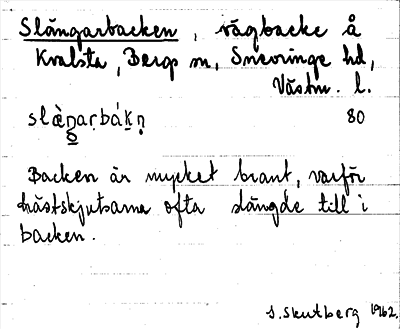 Slängarbacken, vägbacke å
Kvalsta, Bergs sn, Snevringe hd,
Västm. l.
slàŋarbákn̥ 80
Backen är mycket brant, varför
hästskjutsarna ofta slängde till i
backen.
S. Skutberg 1962.